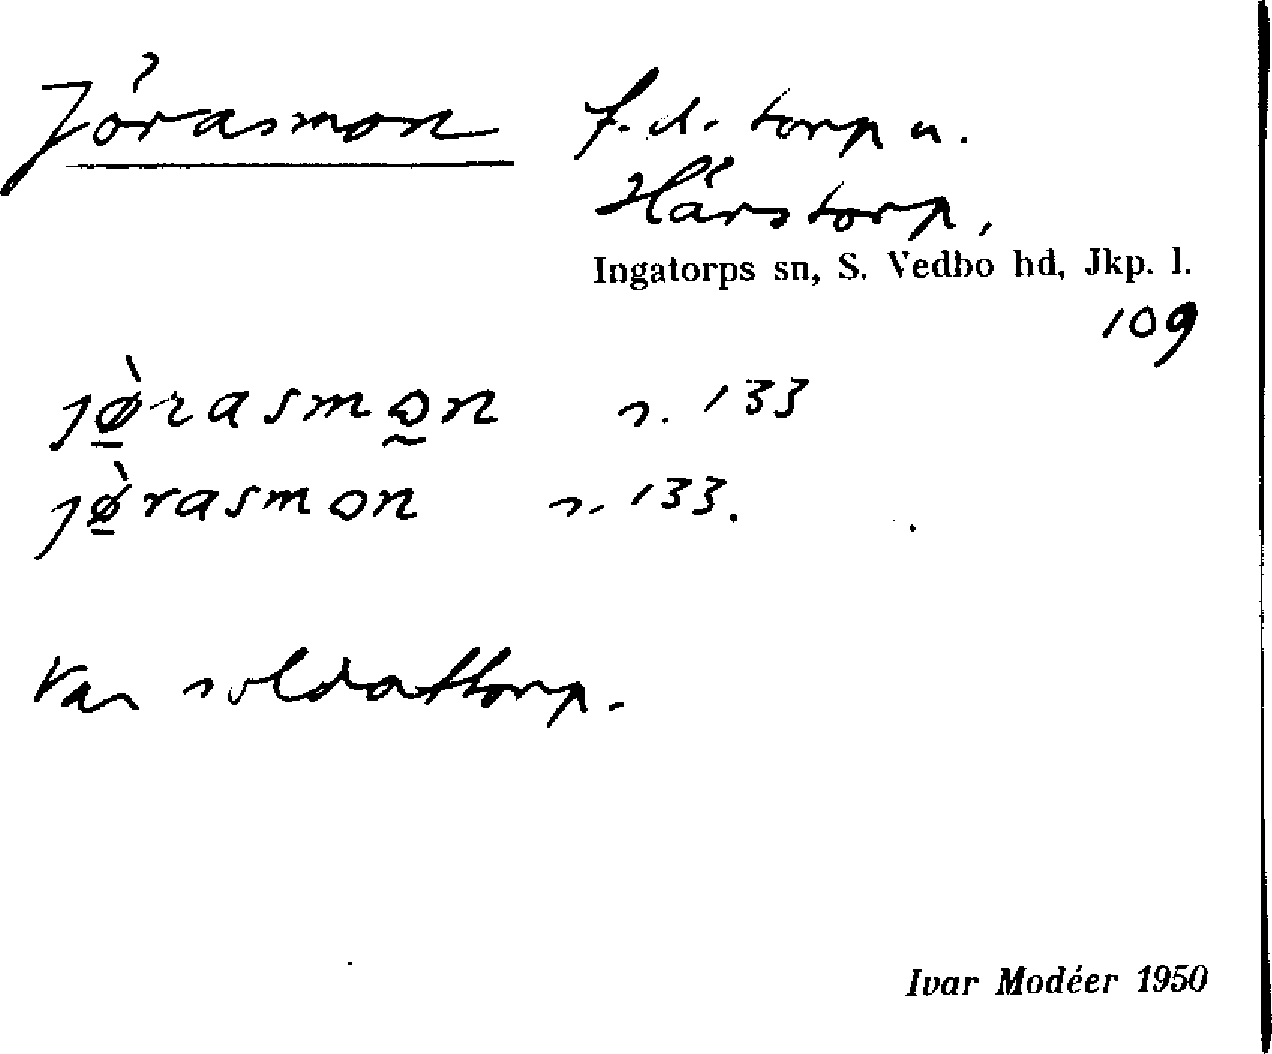 Jörasmon f.d. torp u.
Hårstorp,
Ingatorps sn, S. Vedbo hd, Jkp. l.
109
jø̱̀rasmo̰n s. 133
jø̱̀rasmon s. 133.
Var soldattorp.
Ivar Modéer 1950